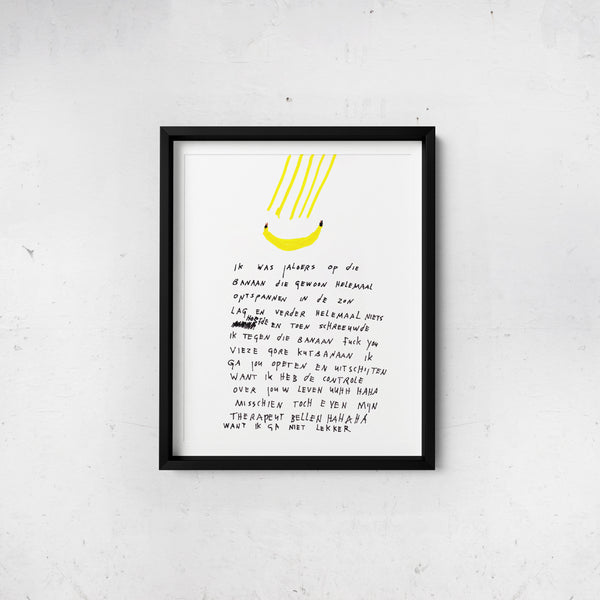 IK WAS JALOERS OP DIE
BANAAN DIE GEWOON HELEMAAL
ONTSPANNEN IN DE ZON
LAG EN VERDER HELEMAAL NIETS
HOEFDE EN TOEN SCHREEUWDE
IK TEGEN DIE BANAAN FUCK YOU
VIEZE GORE KUTBANAAN IK
GA JOU OPETEN EN UITSCHIJTEN
WANT IK HEB DE CONTROLE
OVER JOUW LEVEN UUHH HAHA
MISSCHIEN TOCH EVEN MIJN
THERAPEUT BELLEN HAHAHA
WANT IK GA NIET LEKKER